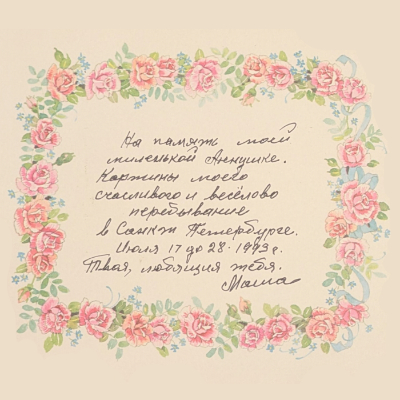 На память моей
миленькой Аннушке.
Картины моего
счасливого и весёлово
перебывание
в Санкт Петербурге.
Июля 17 до 28. 1993 г.
Твая, любящия тебя.
Маша